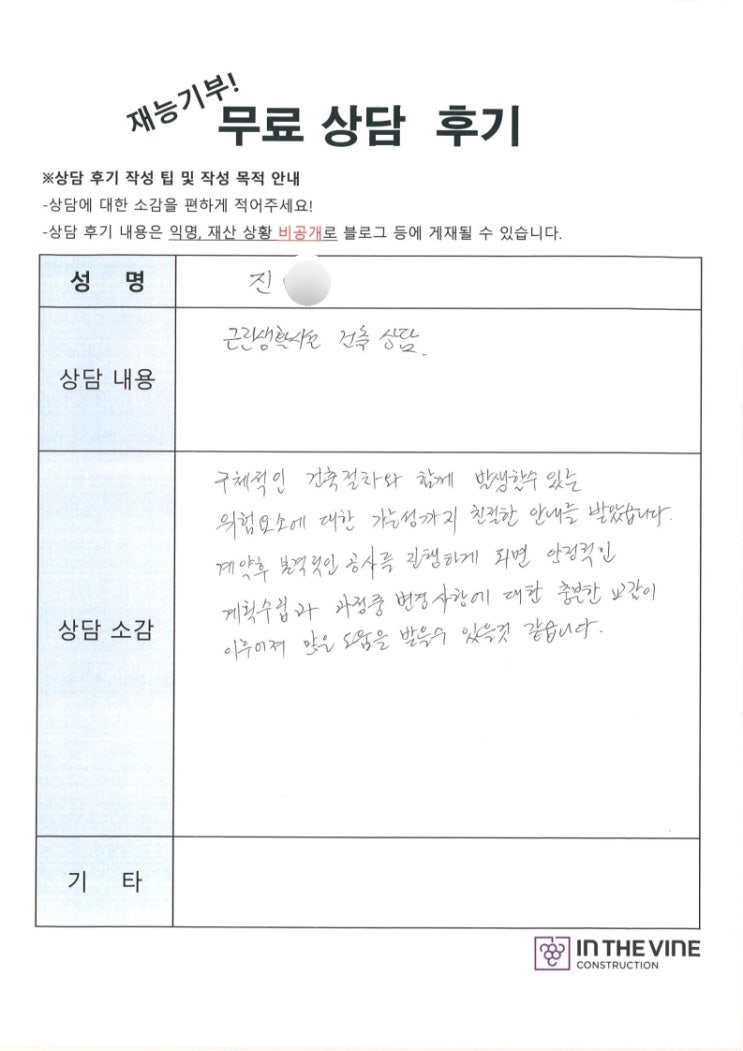 재능기부!
무료 상담 후기
※상담 후기 작성 팁 및 작성 목적 안내
-상담에 대한 소감을 편하게 적어주세요!
-상담 후기 내용은 익명, 재산 상황 비공개로 블로그 등에 게재될 수 있습니다.
성 명
진
상담 내용
근린생활시설 건축 상담.
상담 소감
구체적인 건축절차와 함께 발생할수 있는
위험요소에 대한 가능성까지 친절한 안내를 받았습니다.
계약후 본격적인 공사를 진행하게 되면 안정적인
계획수립과 과정중 변경사항에 대한 충분한 교감이
이루어져 많은 도움을 받을수 있을것 같습니다.
기 타
IN THE VINE
CONSTRUCTION